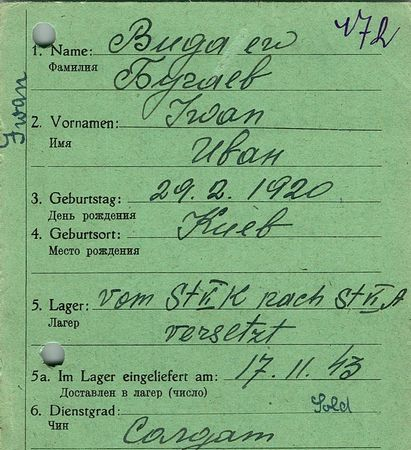 172
1. Name: Бида ев
Фамилия
Бугаев
Iwan
2. Vornamen: Iwan
Имя
Иван
3. Geburtstag: 29.2.1920
День рождения
4. Geburtsort: Киев
Место рождения
5. Lager: vom St II K nach St II A
Лагер
versetzt
5a. Im Lager eingeliefert am: 17.11.43
Доставлен в лагер (число)
6. Dienstgrad: Sold
Чин
Солдат